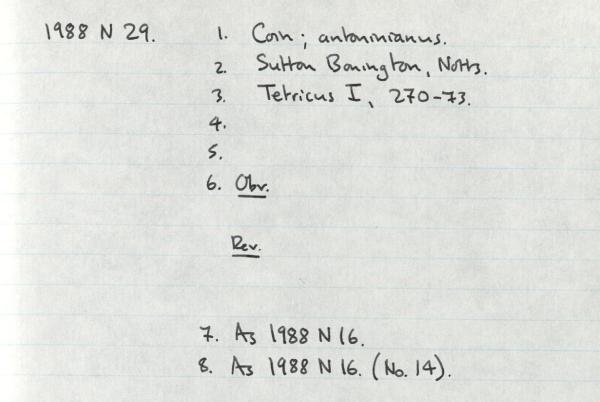 1988 N 29. 1. Coin; antoninianus.
2. Sutton Bonington, Notts.
3. Tetricus I, 270-73.
4.
5.
6. Obv.
Rev.
7. As 1988 N 16.
8. As 1988 N 16. (No. 14).